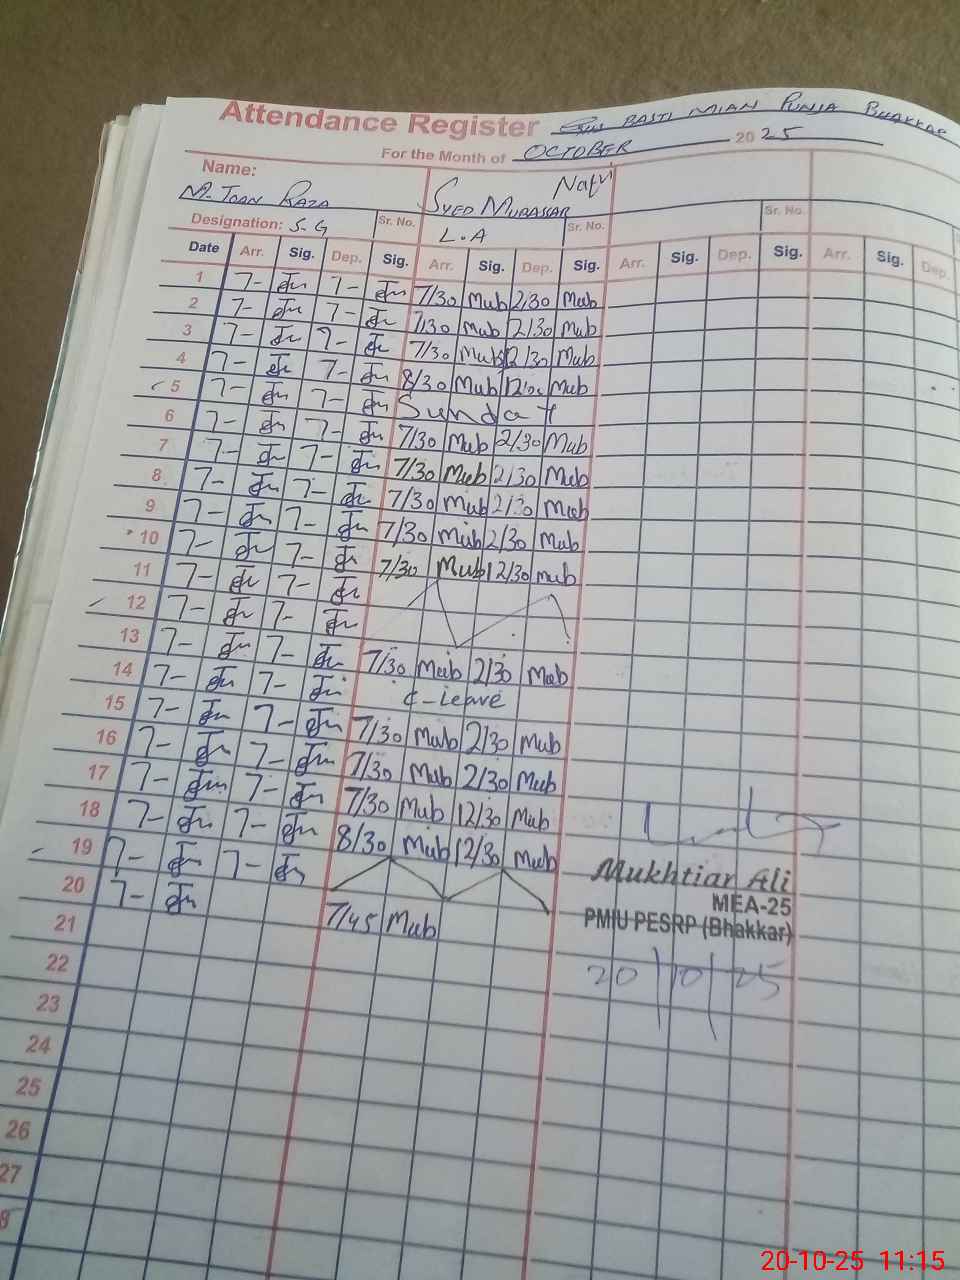 Attendance Register BASTI MIAN PUNJA BHAKKAR
For the Month of OCTOBER 2025
Name:
M. Toan Raza Syed Mubassar Naqvi
Designation: S-G Sr. No. L.A Sr. No. Sr. No.
Date Arr. Sig. Dep. Sig. Arr. Sig. Dep. Sig. Arr. Sig. Dep. Sig. Arr. Sig. Dep.
1 7- 7- 7/30 Mub 2/30 Mub
2 7- 7- 7/30 Mub 2/30 Mub
3 7- 7- 7/30 Mub 12/30 Mub
4 7- 7- 8/30 Mub Mub
5 7- 7- Sunday
6 7- 7- 7/30 Mub 2/30 Mub
7 7- 7- 7/30 Mub 2/30 Mub
8 7- 7- 7/30 Mub 2/30 Mub
9 7- 7- 7/30 Mub 2/30 Mub
10 7- 7- 7/30 Mub 12/30 Mub
11 7- 7-
12 7- 7-
13 7- 7- 7/30 Mub 2/30 Mub
14 7- 7- C-Leave
15 7- 7- 7/30 Mub 2/30 Mub
16 7- 7- 7/30 Mub 2/30 Mub
17 7- 7- 7/30 Mub 12/30 Mub
18 7- 7- 8/30 Mub 12/30 Mub
19 7- 7-
20 7- 7/45 Mub
21
22
23
24
25
26
27
Mukhtiar Ali
MEA-25
PMIU PESRP (Bhakkar)
20/10/25
20-10-25 11:15